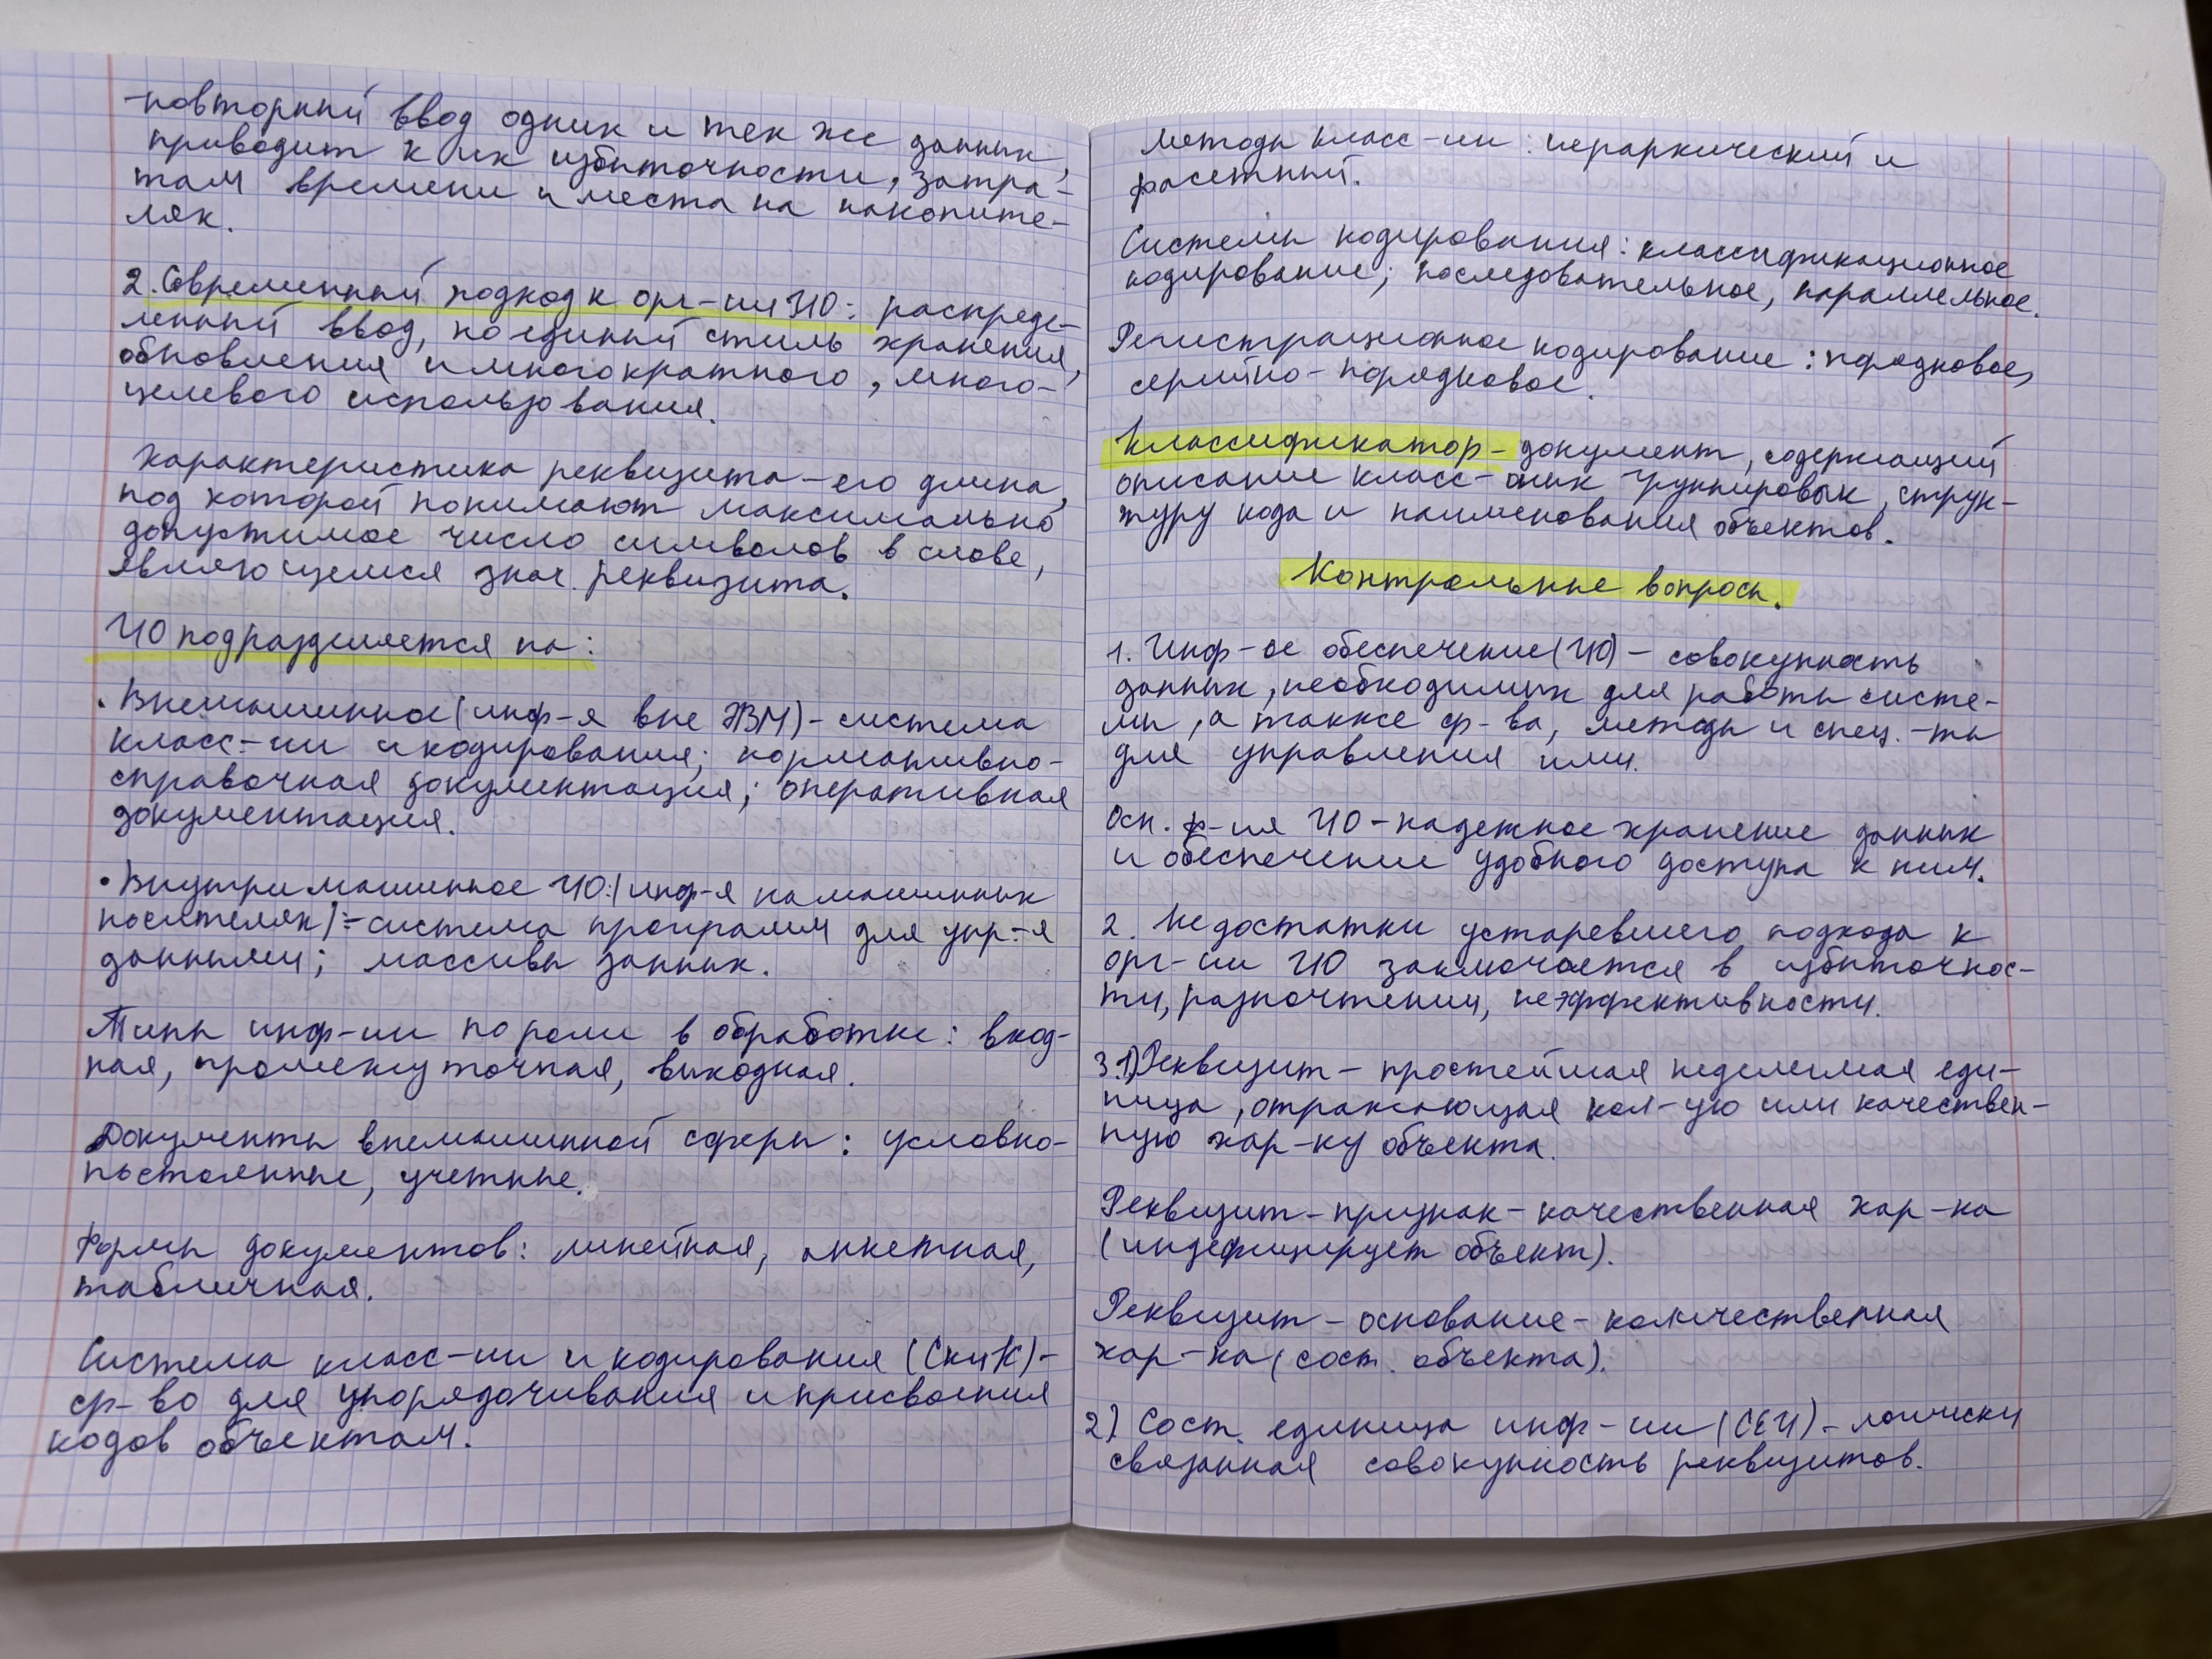 -повторный ввод одних и тех же данных,
приводит к их избыточности, затра-
там времени и места на накопите-
лях.
2. Современный подход к орг-ии ИО: распреде-
ленный ввод, но единый стиль хранения,
обновления и многократного, много-
целевого использования.
Характеристика реквизита - его длина,
под которой понимают максимально
допустимое число символов в слове,
являющемся знач. реквизита.
ИО подразделяется на:
• Внемашинное (инф-я вне ЭВМ) - система
класс-ии и кодирования; нормативно-
справочная документация; оперативная
документация.
• Внутримашинное ИО: (инф-я на машинных
носителях) - система программ для упр-я
данными; массивы данных.
Типы инф-ии по роли в обработке: вход-
ная, промежуточная, выходная.
Документы внемашинной сферы: условно-
постоянные, учетные.
Формы документов: линейная, анкетная,
табличная.
Система класс-ии и кодирования (СКиК) -
ср-во для упорядочивания и присвоения
кодов объектам.
Методы класс-ии: иерархический и
фасетный.
Системы кодирования: классификационное
кодирование; последовательное, параллельное.
Регистрационное кодирование: порядковое,
серийно-порядковое.
Классификатор - документ, содержащий
описание класс-оных группировок, струк-
туру кода и наименования объектов.
Контрольные вопросы.
1. Инф-ое обеспечение (ИО) - совокупность
данных, необходимых для работы систе-
мы, а также ср-ва, методы и спец.-ты
для управления ими.
Осн. ф-ия ИО - надежное хранение данных
и обеспечение удобного доступа к ним.
2. Недостатки устаревшего подхода к
орг-ии ИО заключается в избыточнос-
ти, разночтении, неэффективности.
3.1) Реквизит - простейшая неделимая еди-
ница, отражающая кол-ую или качествен-
ную хар-ку объекта.
Реквизит - признак - качественная хар-ка
(индефицирует объект).
Реквизит - основание - количественная
хар-ка (сост. объекта).
2) Сост. единица инф-ии (СЕИ) - логически
связанная совокупность реквизитов.